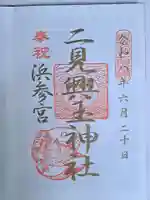 令和八年六月二十日
二見興玉神社
奉祝
浜参宮